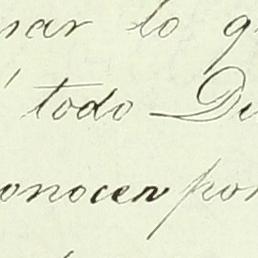 nar lo q
todo Du
onocer por